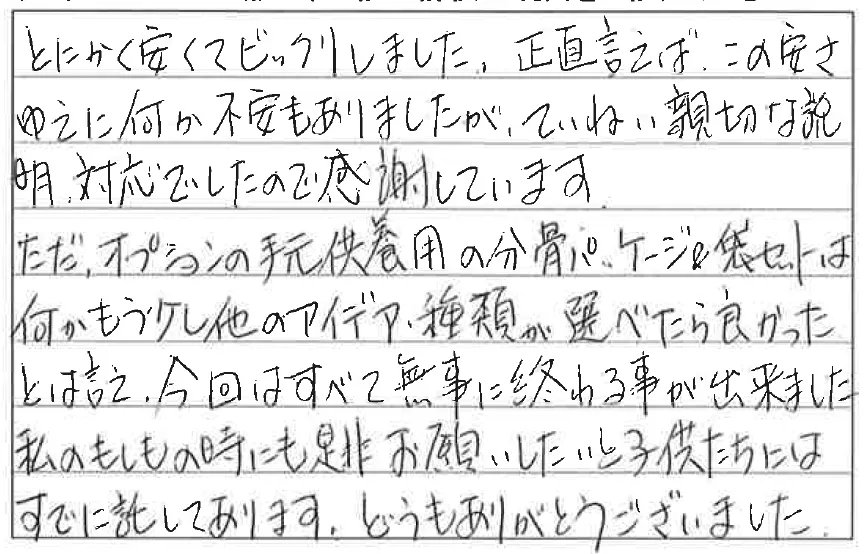 とにかく安くてビックリしました。正直言えば、この安さ
ゆえに何か不安もありましたが、ていねい親切な説
明、対応でしたので感謝しています。
ただ、オプションの手元供養用の分骨パッケージ&袋セットは
何かもう少し他のアイデア・種類が選べたら良かった
とは言え、今回はすべて無事に終わる事が出来ました
私のもしもの時にも是非お願いしたいと子供たちには
すでに託してあります。どうもありがとうございました。